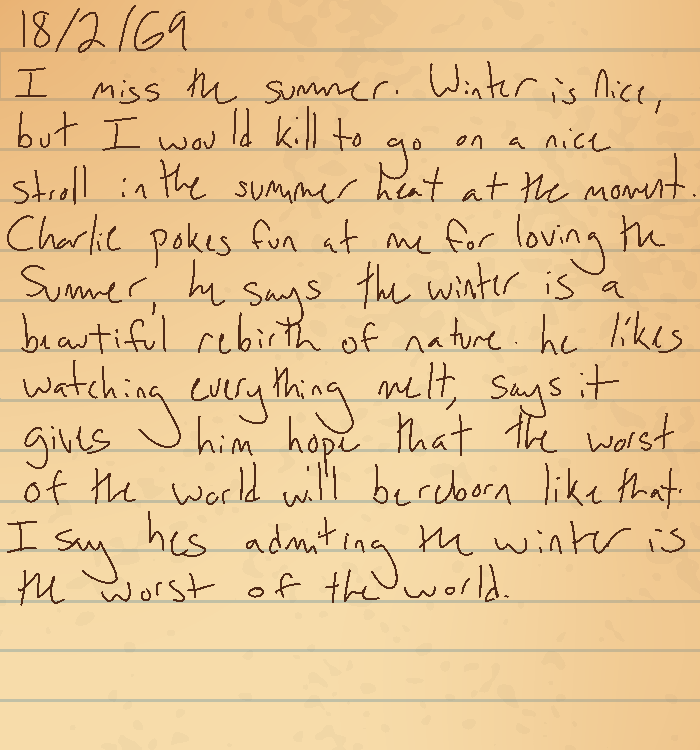 18/2/69
I miss the summer. Winter is nice,
but I would kill to go on a nice
stroll in the summer heat at the moment.
Charlie pokes fun at me for loving the
Summer, he says the winter is a
beautiful rebirth of nature. he likes
watching everything melt, says it
gives him hope that the worst
of the world will be reborn like that.
I say hes admiting the winter is
the worst of the world.